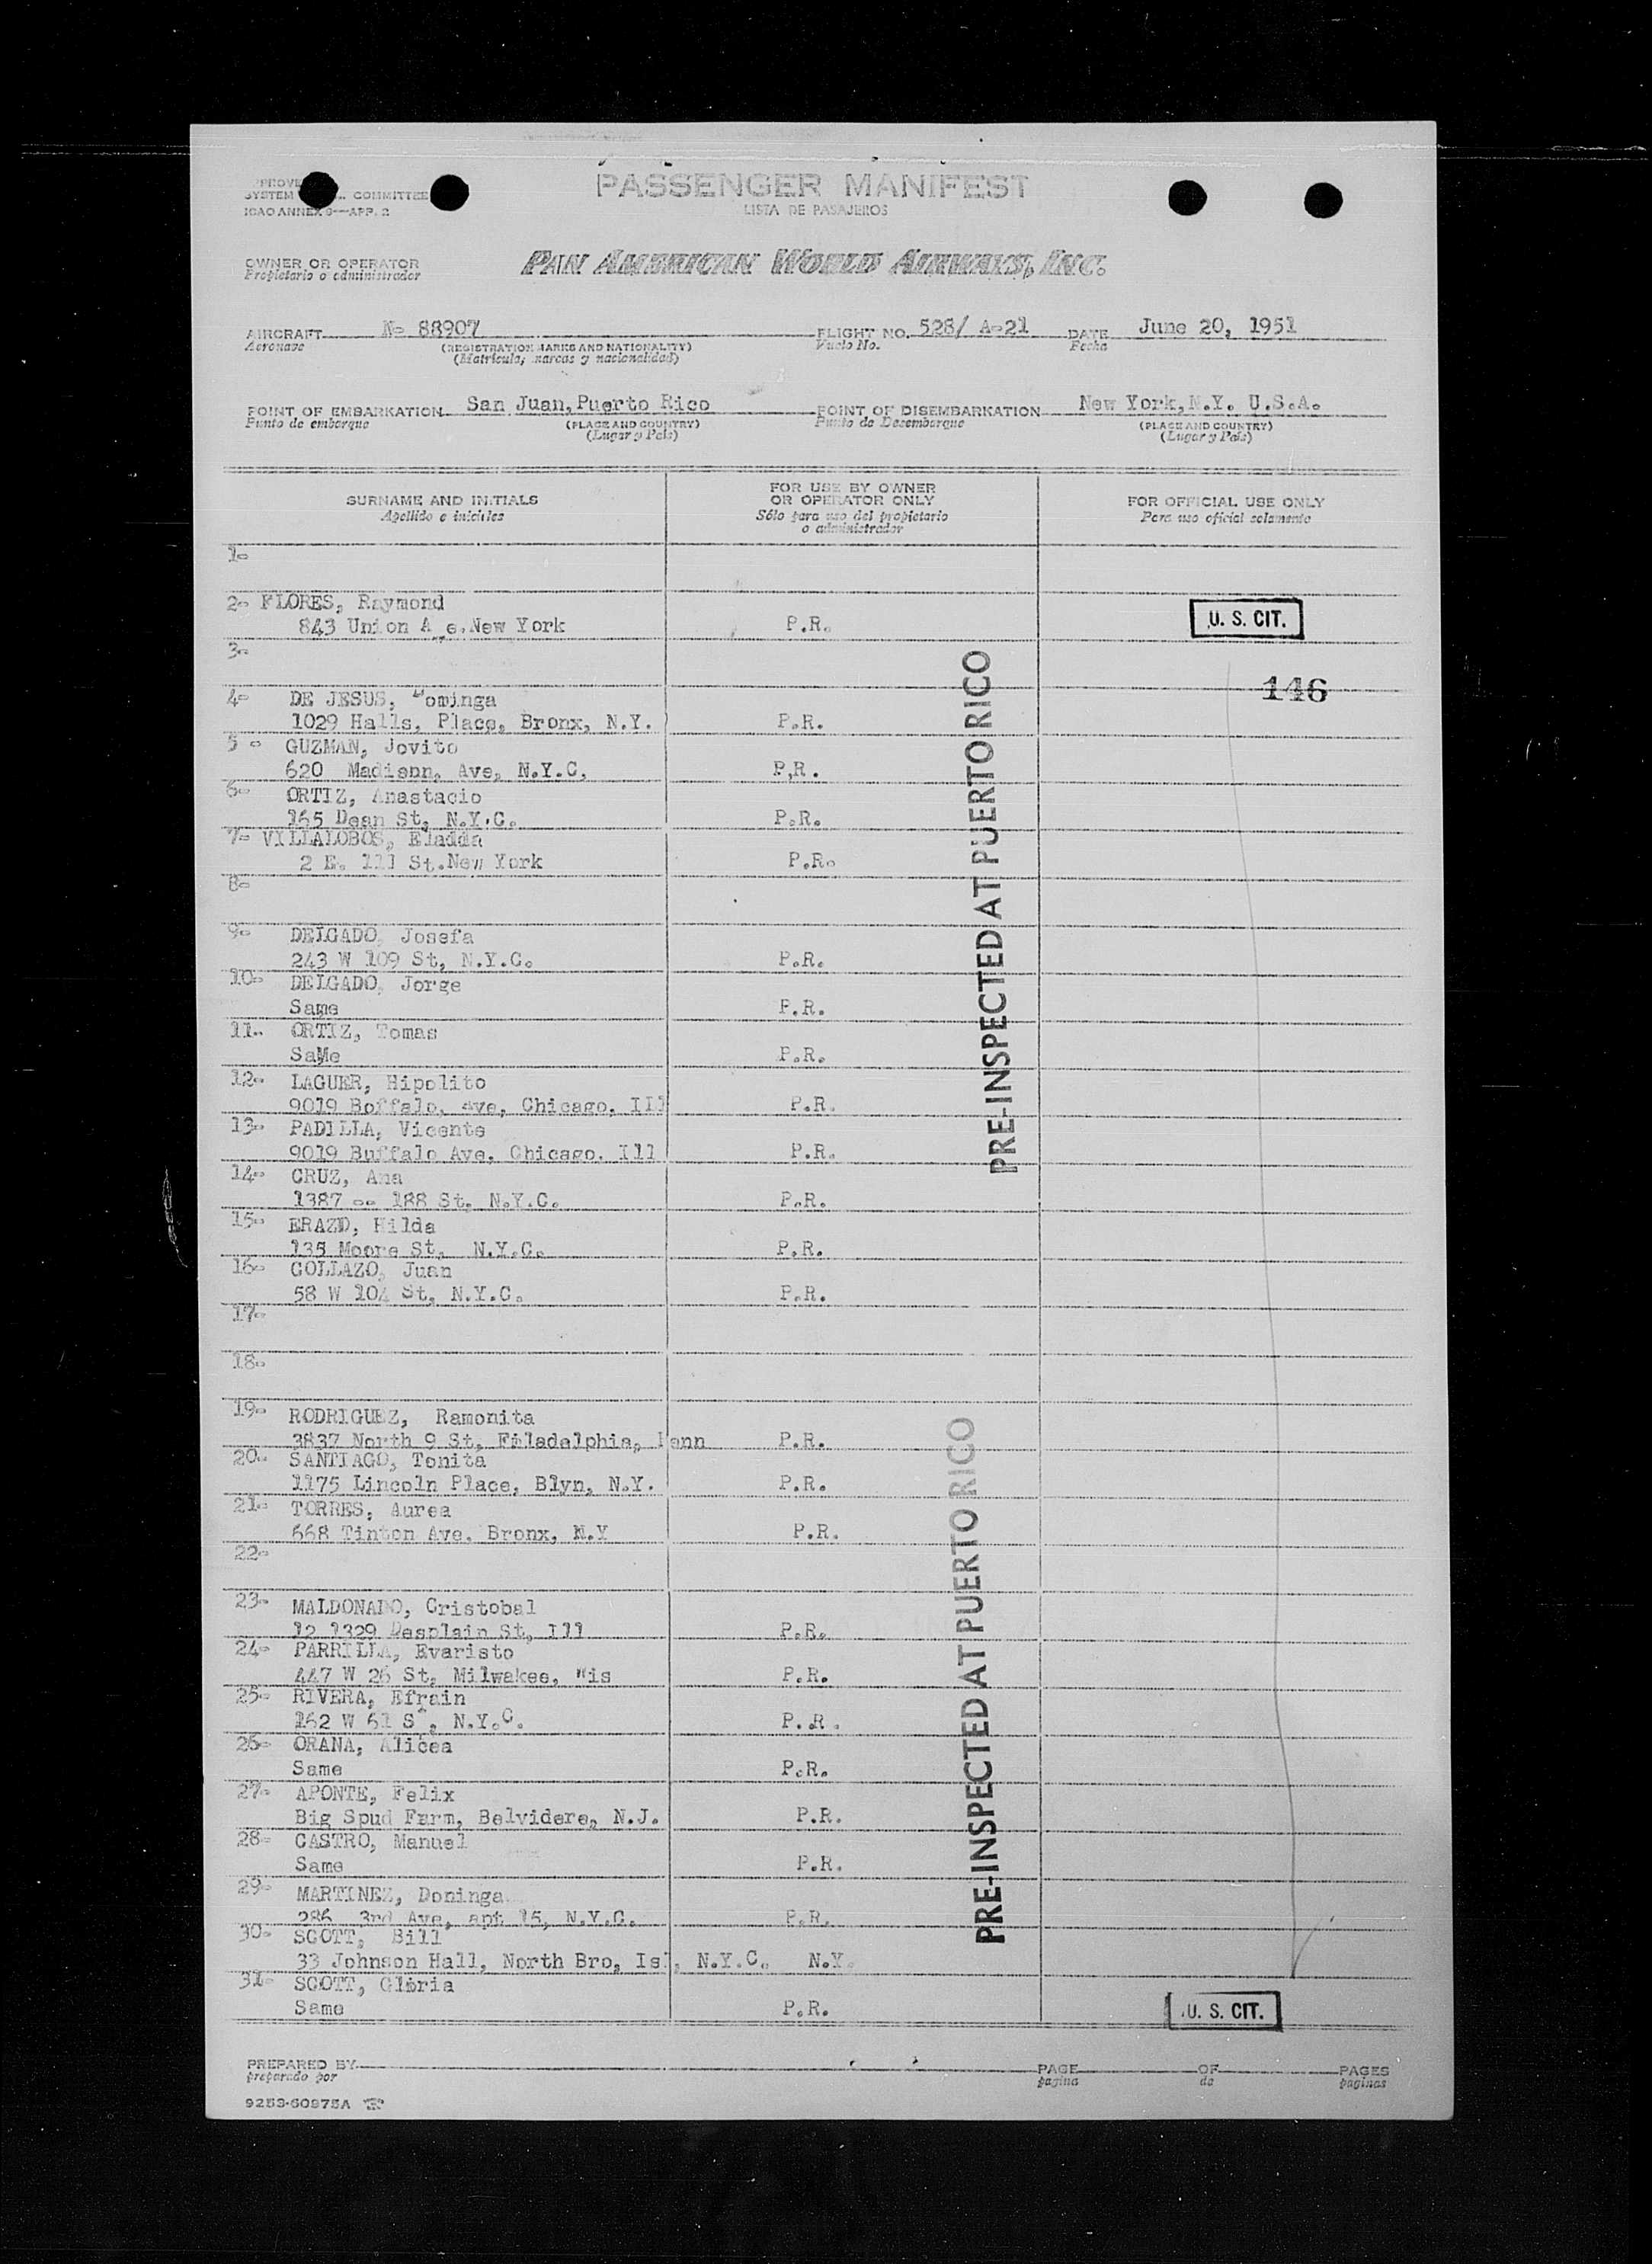 SYSTEM COMMITTEE
ICAO ANNEX 9—APP. 2
PASSENGER MANIFEST
LISTA DE PASAJEROS
OWNER OR OPERATOR
Propietario o administrador
PAN AMERICAN WORLD AIRWAYS, INC.
AIRCRAFT N- 88907 FLIGHT NO. 528/ A-21 DATE June 20, 1951
Aeronave (REGISTRATION MARKS AND NATIONALITY) Vuelo No. Fecha
(Matrícula, marcas y nacionalidad)
POINT OF EMBARKATION San Juan, Puerto Rico POINT OF DISEMBARKATION New York, N.Y. U.S.A.
Punto de embarque (PLACE AND COUNTRY) Punto de Desembarque (PLACE AND COUNTRY)
(Lugar y País) (Lugar y País)
SURNAME AND INITIALS
Apellido e iniciales
FOR USE BY OWNER
OR OPERATOR ONLY
Sólo para uso del propietario
o administrador
FOR OFFICIAL USE ONLY
Para uso oficial solamente
1-
2- FLORES, Raymond
843 Union A e. New York P.R. U. S. CIT.
3-
146
4- DE JESUS, Dominga
1029 Halls, Place, Bronx, N.Y. P.R.
5 - GUZMAN, Jovito
620 Madison, Ave, N.Y.C, P,R.
6- ORTIZ, Anastacio
165 Dean St, N.Y.C. P.R.
7- VILLALOBOS, Eladda
2 E. 111 St. New York P.R.
8-
9- DELGADO, Josefa
243 W 109 St, N.Y.C. P.R.
10- DELGADO, Jorge
Same P.R.
11- ORTIZ, Tomas
SaMe P.R.
12- LAGUER, Hipolito
9019 Boffalo, Ave, Chicago, Ill P.R.
13- PADILLA, Vicente
9019 Buffalo Ave. Chicago. Ill P.R.
14- CRUZ, Ana
1387 -- 188 St, N.Y.C. P.R.
15- ERAZO, Hilda
135 Moore St, N.Y.C. P.R.
16- COLLAZO, Juan
58 W 104 St, N.Y.C. P.R.
17-
18-
PRE-INSPECTED AT PUERTO RICO
19- RODRIGUEZ, Ramonita
3837 North 9 St, Filadelphia, Penn P.R.
20- SANTIAGO, Tonita
1175 Lincoln Place, Blyn, N.Y. P.R.
21- TORRES, Aurea
668 Tinton Ave. Bronx, N.Y P.R.
22-
23- MALDONADO, Cristobal
12 1329 Desplain St, Ill P.R.
24- PARRILLA, Evaristo
447 W 26 St, Milwakee, Wis P.R.
25- RIVERA, Efrain
162 W 61 St, N.Y.C. P.R.
26- ORANA, Alicea
Same P.R.
27- APONTE, Felix
Big Spud Farm, Belvidere, N.J. P.R.
28- CASTRO, Manuel
Same P.R.
29- MARTINEZ, Doninga
286 3rd Ave, apt 15, N.Y.C. P.R.
30- SCOTT, Bill
33 Johnson Hall, North Bro, Isl, N.Y.C. N.Y.
31- SCOTT, Gloria
Same P.R. U. S. CIT.
PRE-INSPECTED AT PUERTO RICO
PREPARED BY PAGE OF PAGES
preparado por pagina de paginas
9253-60975A